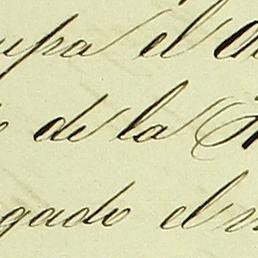 upa el
de la
gado el